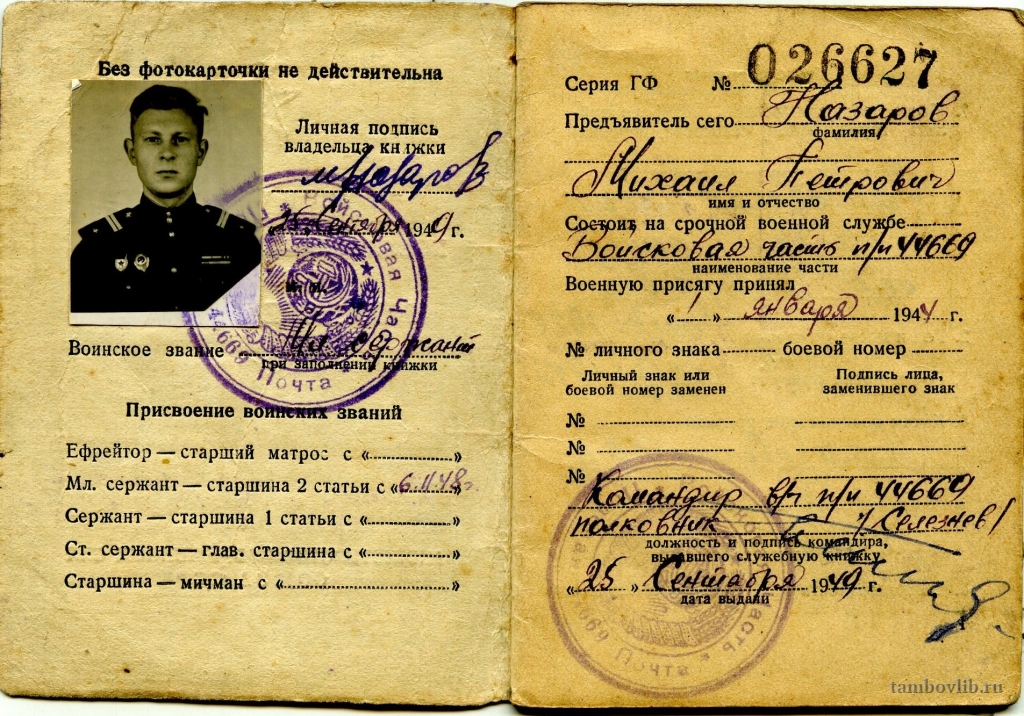 Без фотокарточки не действительна
Личная подпись
владельца книжки
МНазаров
«25» Сентября 1949 г.
Воинское звание Мл. сержант
при заполнении книжки
Присвоение воинских званий
Ефрейтор — старший матрос с « »
Мл. сержант — старшина 2 статьи с «6.11.48г»
Сержант — старшина 1 статьи с « »
Ст. сержант — глав. старшина с « »
Старшина — мичман с « »
Войсковая Часть
44669 Почта
Серия ГФ № 026627
Предъявитель сего Назаров
фамилия
Михаил Петрович
имя и отчество
Состоит на срочной военной службе
Войсковая часть п/п 44669
наименование части
Военную присягу принял
«1» января 1944 г.
№ личного знака боевой номер
Личный знак или
боевой номер заменен
Подпись лица,
заменившего знак
№
№
№
Командир в/ч п/п 44669
полковник /Селезнев/
должность и подпись командира,
выдавшего служебную книжку
«25» Сентября 1949 г.
дата выдачи
Часть
669 Почта
tambovlib.ru